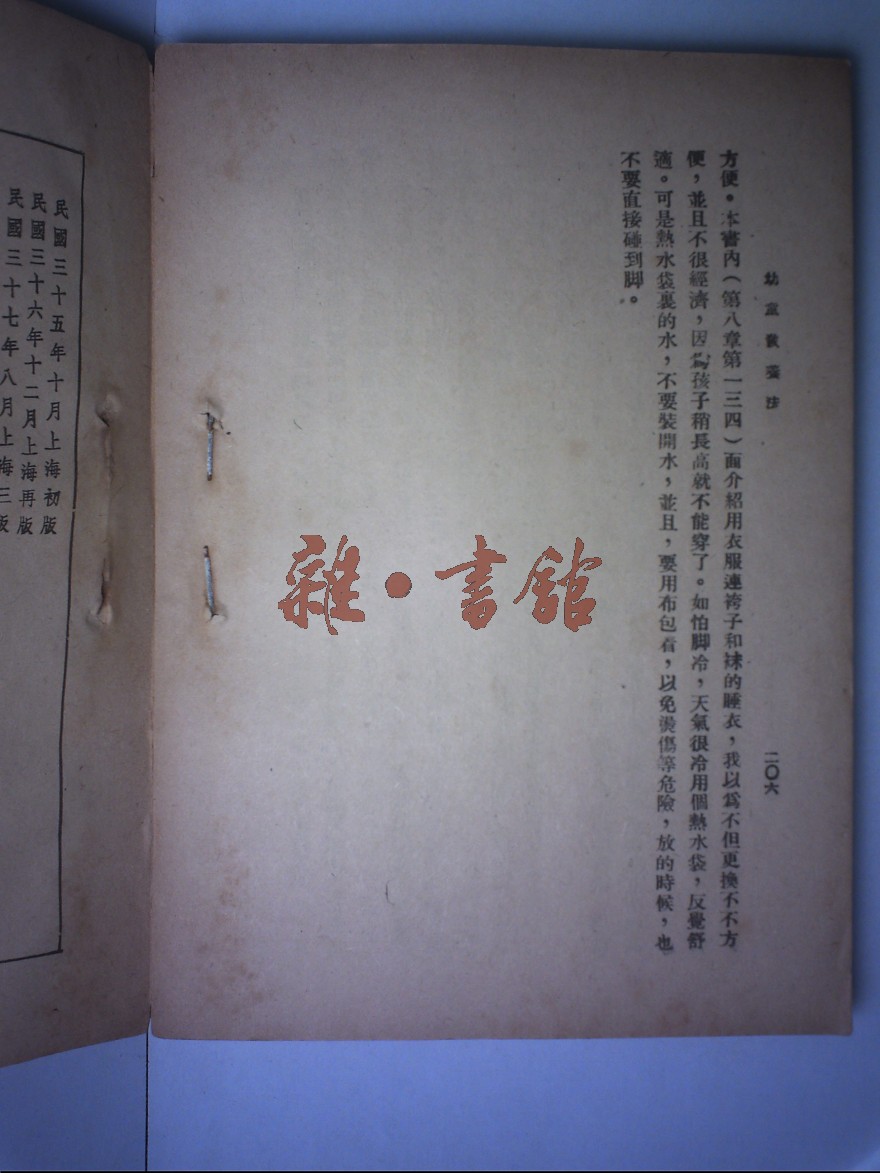 幼童教養法
二〇六
方便。本書內（第八章第一三四）面介紹用衣服連袴子和袜的睡衣，我以爲不但更換不不方
便，並且不很經濟，因爲孩子稍長高就不能穿了。如怕脚冷，天氣很冷用個熱水袋，反覺舒
適。可是熱水袋裏的水，不要裝開水，並且，要用布包着，以免燙傷等危險，放的時候，也
不要直接碰到脚。
雜·書館
民國三十五年十月上海初版
民國三十六年十二月上海再版
民國三十七年八月上海三版